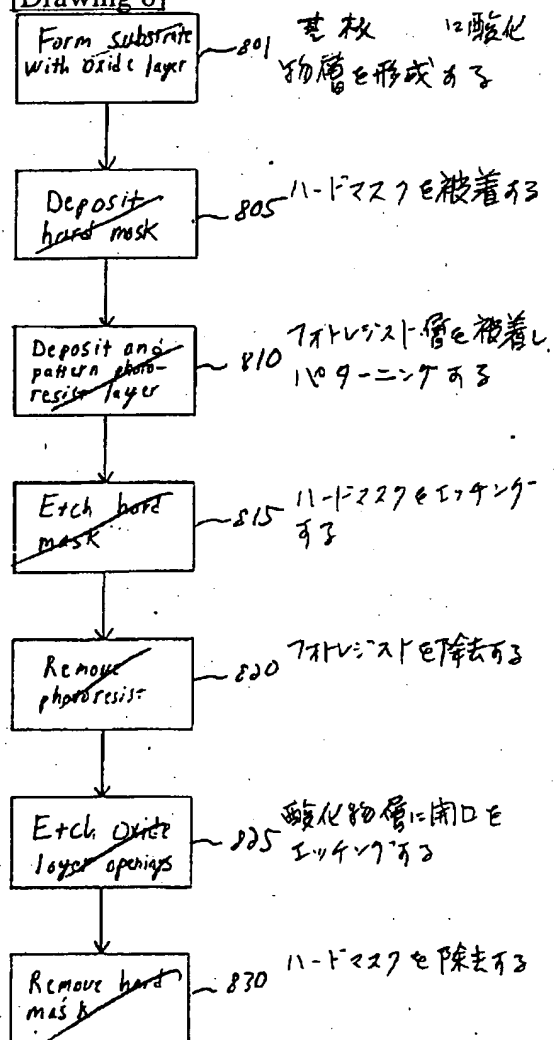 [Drawing 8]
Form substrate
with oxide layer
801
基板 に酸化
物層を形成する
Deposit
hard mask
805
ハードマスクを被着する
Deposit and
pattern photo-
resist layer
810
フォトレジスト層を被着し、
パターニングする
Etch hard
mask
815
ハードマスクをエッチング
する
Remove
photoresist
820
フォトレジストを除去する
Etch oxide
layer openings
825
酸化物層に開口を
エッチングする
Remove hard
mask
830
ハードマスクを除去する